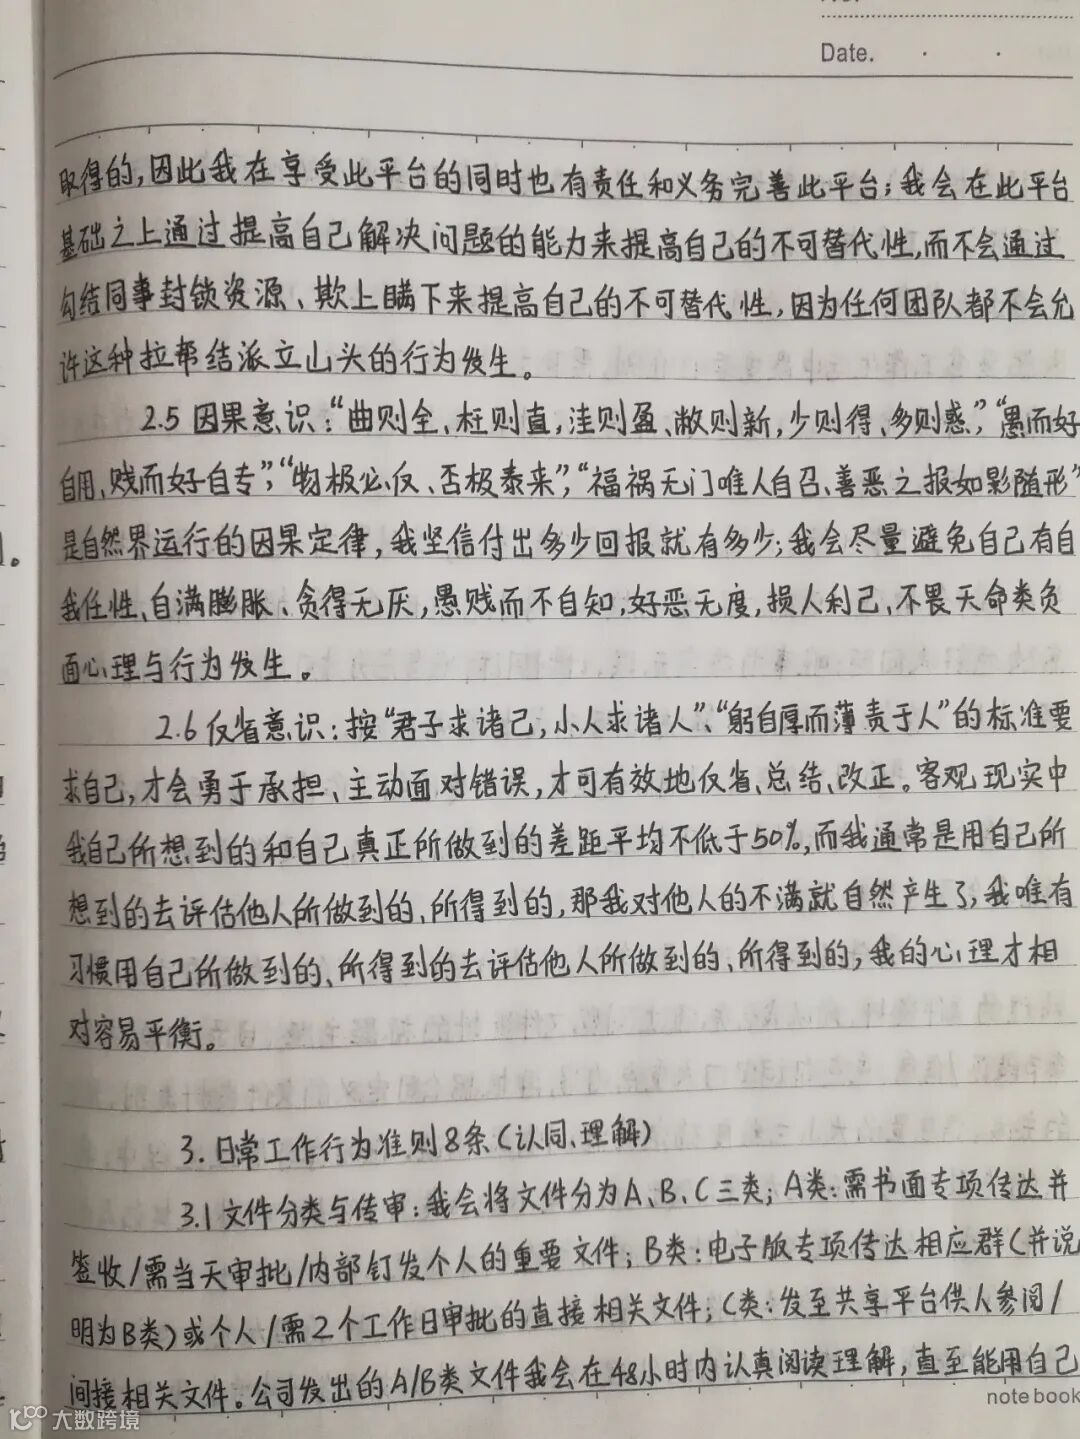 Date.
取得的,因此我在享受此平台的同时也有责任和义务完善此平台;我会在此平台
基础之上通过提高自己解决问题的能力来提高自己的不可替代性,而不会通过
勾结同事封锁资源、欺上瞒下来提高自己的不可替代性,因为任何团队都不会允
许这种拉帮结派立山头的行为发生。
2.5 因果意识:“曲则全、枉则直,洼则盈、敝则新,少则得、多则惑”,“愚而好
自用、贱而好自专”,“物极必反、否极泰来”,“福祸无门唯人自召、善恶之报如影随形”
是自然界运行的因果定律,我坚信付出多少回报就有多少;我会尽量避免自己有自
我任性、自满膨胀、贪得无厌,愚贱而不自知,好恶无度,损人利己、不畏天命类负
面心理与行为发生。
2.6 反省意识:按“君子求诸己,小人求诸人”、“躬自厚而薄责于人”的标准要
求自己,才会勇于承担、主动面对错误,才可有效地反省、总结、改正。客观现实中
我自己所想到的和自己真正所做到的差距平均不低于50%,而我通常是用自己所
想到的去评估他人所做到的、所得到的,那我对他人的不满就自然产生了;我唯有
习惯用自己所做到的、所得到的去评估他人所做到的、所得到的,我的心理才相
对容易平衡。
3.日常工作行为准则8条(认同、理解)
3.1 文件分类与传审:我会将文件分为A、B、C三类;A类:需书面专项传达并
签收/需当天审批/内部钉发个人的重要文件;B类:电子版专项传达相应群(并说
明为B类)或个人/需2个工作日审批的直接相关文件;C类:发至共享平台供人参阅/
间接相关文件。公司发出的A/B类文件我会在48小时内认真阅读理解,直至能用自己
notebook
大数跨境